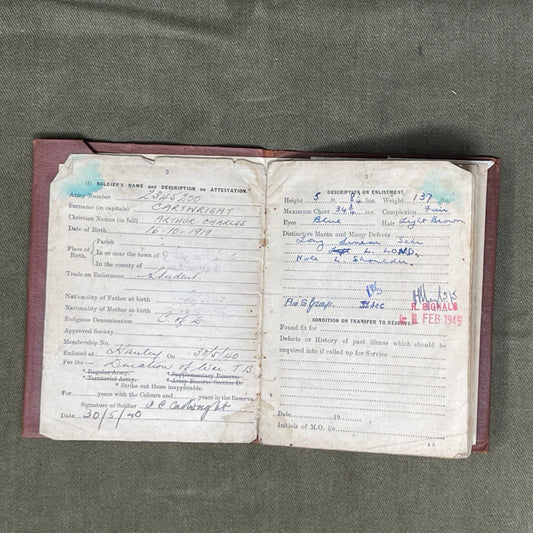 2
(1) SOLDIER'S NAME and DESCRIPTION on ATTESTATION.
Army Number 2345200
Surname (in capitals) CARTWRIGHT
Christian Names (in full) ARTHUR CHARLES
Date of Birth 16.10.1919
Place of Birth.
Parish
In or near the town of
In the county of
Trade on Enlistment Student
Nationality of Father at birth
Nationality of Mother at birth
Religious Denomination C of E.
Approved Society
Membership No.
Enlisted at Hanley On 30/5/40
For the :— Duration of War
* Regular Army. * Supplementary Reserve.
* Territorial Army. * Army Reserve Section D.
* Strike out those inapplicable.
For years with the Colours and years in the Reserve.
Signature of Soldier A C Cartwright
Date 30/5/40
3
DESCRIPTION ON ENLISTMENT.
Height 5 ft. ins. Weight 137 lbs.
Maximum Chest ins. Complexion Fair
Eyes Blue Hair Light Brown
Distinctive Marks and Minor Defects
Long
L.
Mole L. Shoulder.
Group
R. SIGNALS
FEB 1945
CONDITION ON TRANSFER TO RESERVE
Found fit for
Defects or History of past illness which should be
enquired into if called up for Service
Date 19
Initials of M.O. i/c